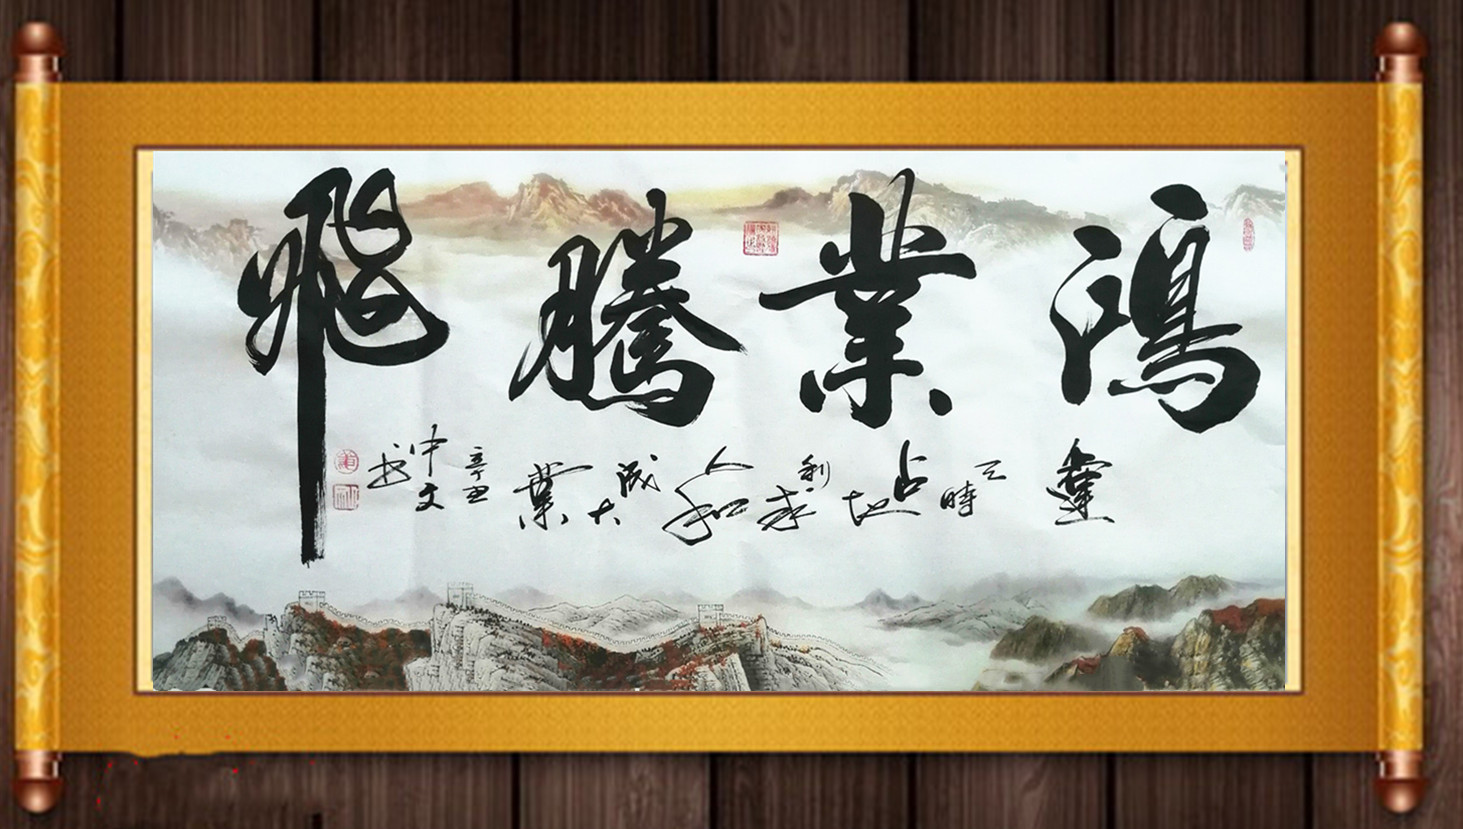 鴻業騰飛
運天時占地利求人和成大業
辛丑
中文书